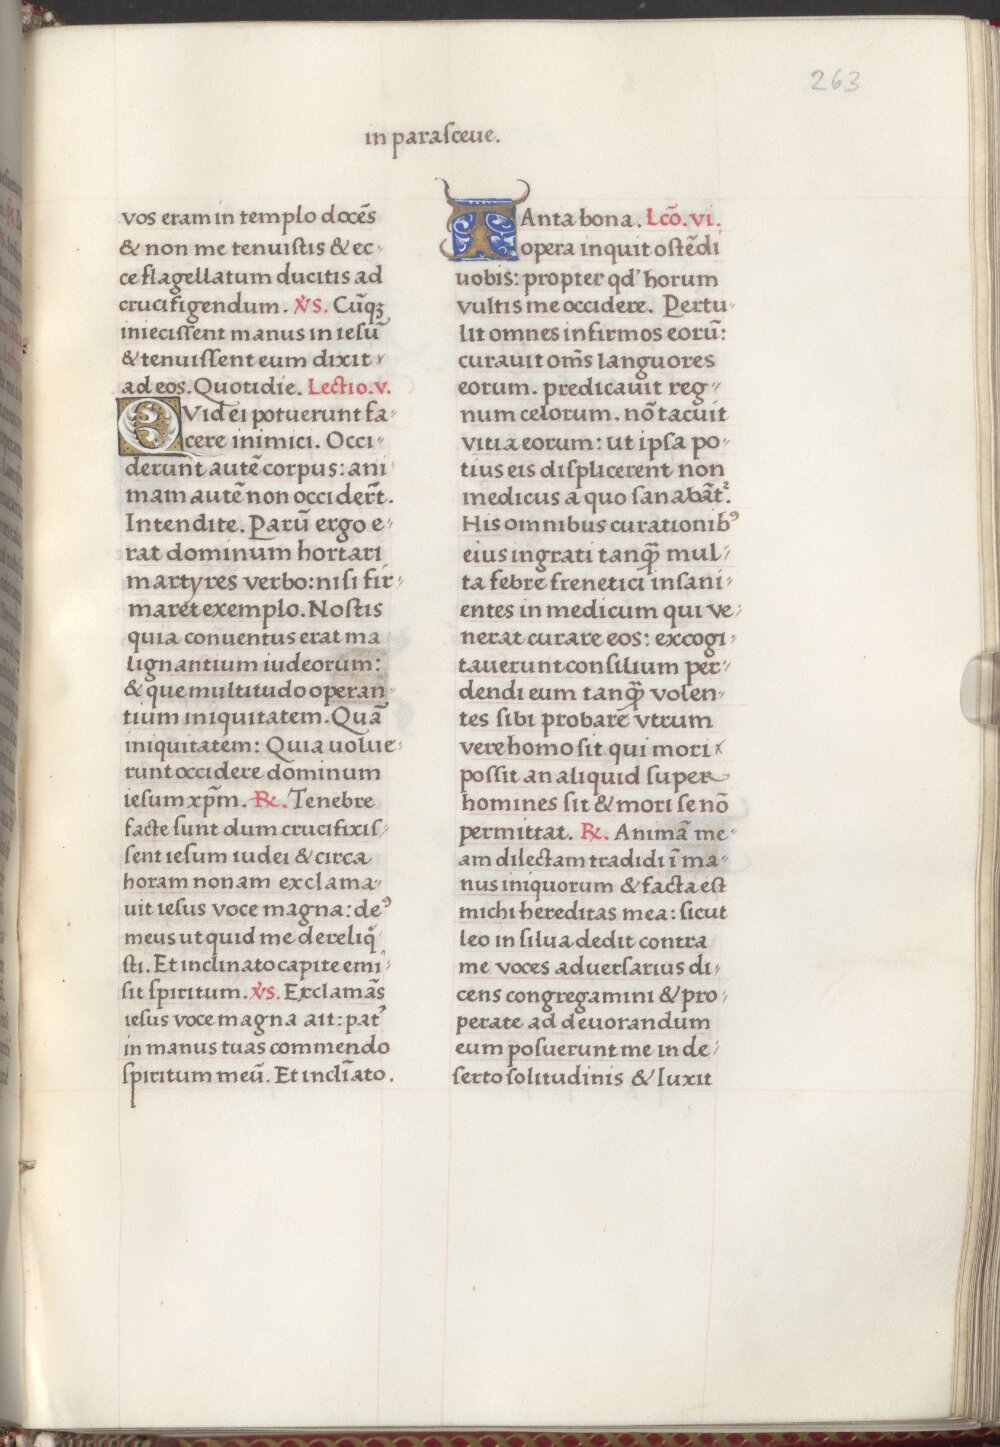 263
in parasceue.
vos eram in templo docẽs
& non me tenuistis & ec-
ce flagellatum ducitis ad
crucifigendum. ꝟs. Cũqꝫ
iniecissent manus in iesũ
& tenuissent eum dixit
ad eos. Quotidie. Lectio. v.
QVid ei potuerunt fa-
cere inimici. Occi-
derunt autẽ corpus: ani
mam autẽ non occidert̃.
Intendite. Parũ ergo e-
rat dominum hortari
martyres verbo: nisi fir-
maret exemplo. Nostis
quia conuentus erat ma
lignantium iudeorum:
& que multitudo operan-
tium iniquitatem. Quã
iniquitatem: Quia uolue-
runt occidere dominum
iesum xp̃m. ℞. Tenebre
facte sunt dum crucifixis-
sent iesum iudei & circa
horam nonam exclama-
uit iesus voce magna: deꝰ
meus ut quid me dereliq̃
sti. Et inclinato capite emi-
sit spiritum. ꝟs. Exclamãs
iesus voce magna ait: pat᾽
in manus tuas commendo
spiritum meũ. Et incl̃iato.
TAnta bona. Lcõ. vi.
opera inquit ostẽdi
uobis: propter qd᾽ horum
vultis me occidere. Pertu-
lit omnes infirmos eorũ:
curauit om̃s languores
eorum. predicauit reg-
num celorum. nõ tacuit
vitia eorum: ut ipsa po-
tius eis displicerent non
medicus a quo sanabãt᾽.
His omnibus curationibꝰ
eius ingrati tanqꝫ̃ mul-
ta febre frenetici insani-
entes in medicum qui ve-
nerat curare eos: excogi-
tauerunt consilium per-
dendi eum tanqꝫ̃ volen-
tes sibi probare vtrum
vere homo sit qui mori
possit an aliquid super
homines sit & mori se nõ
permittat. ℞. Animã me-
am dilectam tradidi ĩ ma-
nus iniquorum & facta est
michi hereditas mea: sicut
leo in silua dedit contra
me voces aduersarius di-
cens congregamini & pro-
perate ad deuorandum
eum posuerunt me in de-
serto solitudinis & luxit